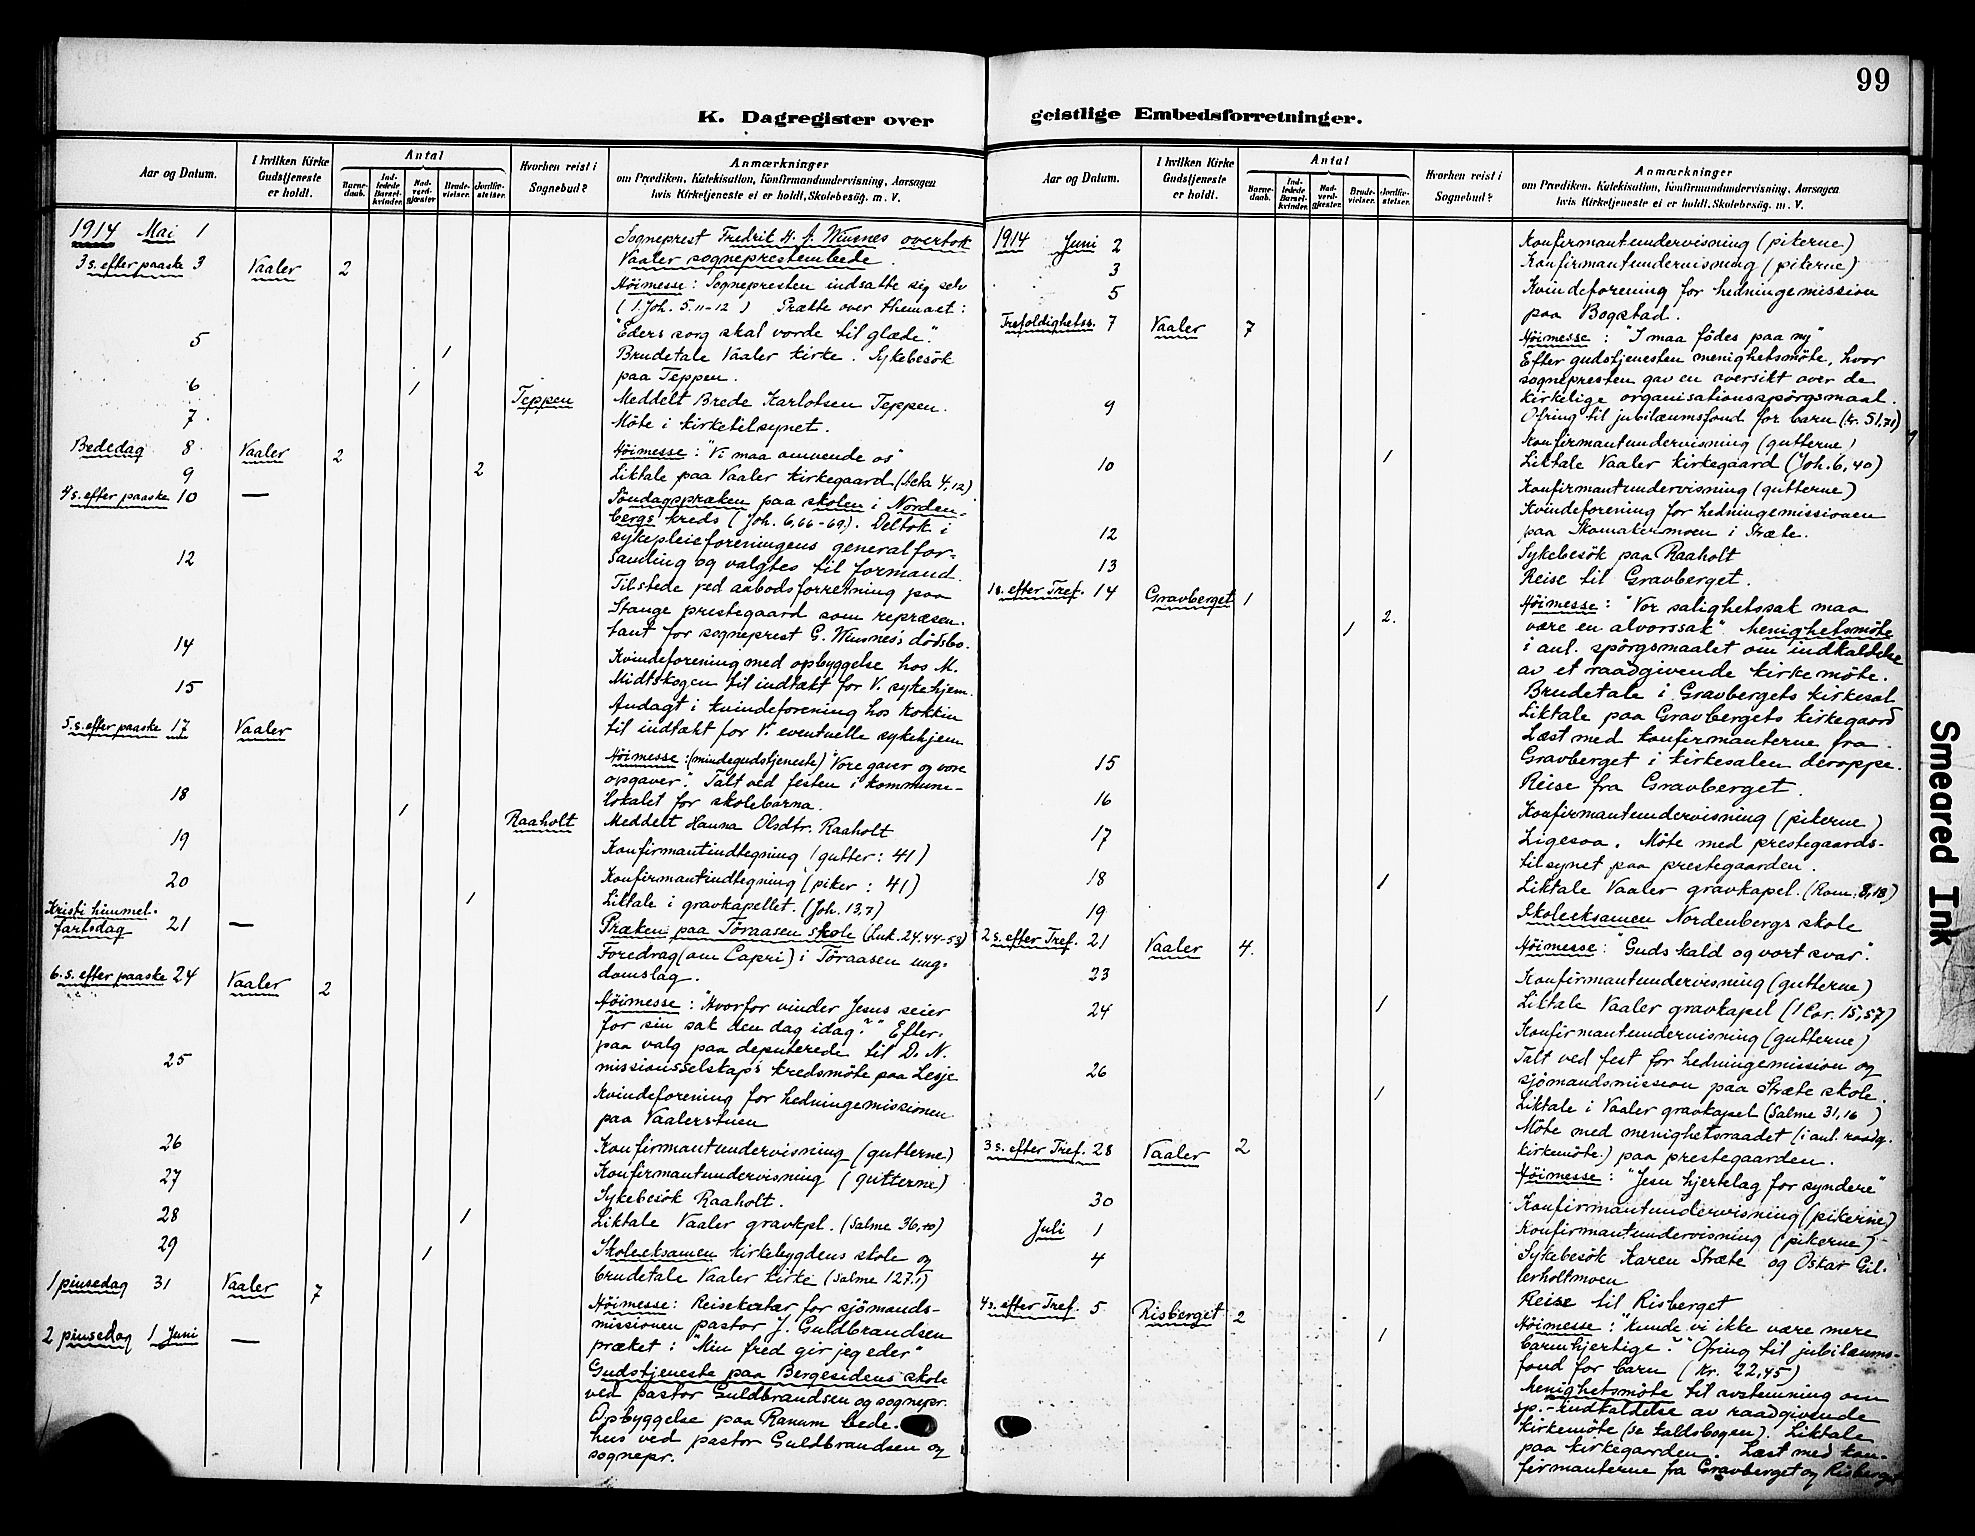 99
K. Dagregister over
Aar og Datum.
I hvilken Kirke Gudstjeneste er holdt.
Antal
Barnedaab.
Indledede Barselkvinder.
Nadverdgjæster.
Brudevielser.
Jordfæstelser.
Hvorhen reist i Sognebud?
Anmærkninger
om Prædiken, Katekisation, Konfirmandundervisning, Aarsagen
hvis Kirketjeneste ei er holdt, Skolebesøg. m. V.
1914 Mai 1
Sogneprest Fredrik H. A. Wiusnes overtok
3 s. efter paaske 3 Vaaler 2
Vaaler sogneprestembede.
Höimesse: Sognepresten indsatte sig selv
(1. Joh. 5. 11-12) Prætte over themaet:
"Eders sorg skal vorde til glæde".
5 1
Brudetale Vaaler kirke. Sykebesök
paa Teppen.
6 1 Teppen
Meddelt Brede Karlotsen Teppen.
7.
Möte i kirketilsynet.
Bededag 8 Vaaler 2
Höimesse: "Vi maa omvende os"
9 2
Liktale paa Vaaler kirkegaard (Acta 4,12).
4 s. efter paaske 10 —
Söndagspræken paa skolen i Norden-
bergs kreds (Joh. 6,66-69). Deltok i
sykepleieforeningens generalfor-
samling og valgtes til formand.
12
Tilstede ved aabodsforretning paa
Stange prestegaard som repræsen-
tant for sogneprest G. Wiusnes's dödsbo.
14
Kvindeforening med opbyggelse hos M.
Midtskogen til indtækt for V. sykehjem.
15
Andagt i kvindeforening hos Kokkin
til indtækt for V. eventuelle sykehjem
5. s. efter paaske 17 Vaaler
Höimesse: (mindegudstjeneste) "Vore gaver og vore
opgaver". Talt ved festen i kommune-
lokalet for skolebarna.
18 1 Raaholt
Meddelt Hanna Olsdtr. Raaholt
19
Konfirmantindtegning (gutter: 41)
20
Konfirmantindtegning (piker: 41)
1
Liktale i gravkapellet. (Joh. 13,7)
Kristi himmel-
fartsdag 21 —
Præken paa Töraasen skole (Luk. 24.44-53)
Foredrag (om Capri) i Töraasen ung-
domslag.
6. s. efter paaske 24 Vaaler 2
Höimesse: "Hvorfor vinder Jesus seier
for sin sak den dag idag?" Efter-
paa valg paa deputerede til D. N.
missionsselskap's kredsmöte paa Lesje
25
Kvindeforening for hedningemissionen
paa Vaalerstuen
26
Konfirmantundervisning (gutterne)
27
Konfirmantundervisning (gutterne)
Sykebesök Raaholt.
28 1
Liktale Vaaler gravkpl. (Salme 36,10)
29 1
Skoleeksamen kirkebygdens skole og
brudetale Vaaler kirke (Salme 127.1)
1 pinsedag 31 Vaaler 7
Höimesse: Reisesekretær for sjömands-
missionen pastor J. Guldbrandsen
præket: "Min fred gir jeg eder"
2 pinsedag 1 Juni —
Gudstjeneste paa Bergesidens skole
ved pastor Guldbrandsen og sognepr.
Opbyggelse paa Ranum bede-
hus ved pastor Guldbrandsen og
sognepr.
geistlige Embedsforretninger.
Aar og Datum.
I hvilken Kirke Gudstjeneste er holdt.
Antal
Barnedaab.
Indledede Barselkvinder.
Nadverdgjæster.
Brudevielser.
Jordfæstelser.
Hvorhen reist i Sognebud?
Anmærkninger
om Prædiken, Katekisation, Konfirmandundervisning, Aarsagen
hvis Kirketjeneste ei er holdt, Skolebesøg. m. V.
1914 Juni 2
Konfirmantundervisning (pikerne)
3
Konfirmantundervisning (pikerne)
5
Kvindeforening for hedningemission
paa Bogstad.
Trefoldighetss. 7 Vaaler 7
Höimesse: "I maa födes paa ny"
Efter gudstjenesten menighetsmöte, hvor
sognepresten gav en oversikt over de
kirkelige organisationsspörgsmaal.
Ofring til jubilæumsfond for barn (kr. 51,71)
9
Konfirmantundervisning (gutterne)
1
Liktale Vaaler kirkegaard (Joh. 6,40)
10
Konfirmantundervisning (gutterne)
Kvindeforening for hedningemissionen
paa Skomakermoen i Stræte.
12
Sykebesök paa Raaholt
13
Reise til Gravberget.
1 s. efter Tref. 14 Gravberget 1
Höimesse: "Vor salighetssak maa
være en alvorssak". Menighetsmöte
i anl. spörgsmaalet om indkaldelse
av et raadgivende kirkemöte.
1 2.
Brudetale i Gravbergets kirkesal
Liktale paa Gravbergets kirkegaard
Læst med konfirmanterne fra
Gravberget i kirkesalen deroppe.
15
Reise fra Gravberget.
16
Konfirmantundervisning (pikerne)
17
Ligesaa. Möte med prestegaards-
tilsynet paa prestegaarden.
18 1
Liktale Vaaler gravkapel. (Rom. 8,18)
19
Skoleeksamen Nordenbergs skole
2 s. efter Tref. 21 Vaaler 4.
Höimesse: "Guds kald og vort svar".
23
Konfirmantundervisning (gutterne)
1
Liktale Vaaler gravkapel (1 Cor. 15,57)
24
Konfirmantundervisning (gutterne)
Talt ved fest for hedningemission og
sjömandsmission paa Stræte skole.
26 1
Liktale i Vaaler gravkapel (Salme 31,16)
Möte med menighetsraadet (i anl. raadg.
kirkemöte) paa prestegaarden.
3 s. efter Tref. 28 Vaaler 2
Höimesse: "Jesu hjertelag for syndere"
30
Konfirmantundervisning (pikerne)
Juli 1
Konfirmantundervisning (pikerne)
4
Sykebesök Karen Stræte og Oskar Gil-
lerholtmoen
Reise til Risberget
4 s. efter Tref. 5 Risberget 2
Höimesse: "Kunde vi ikke være mere
barmhjertige?" Ofring til jubilæums-
fond for barn (Kr. 22,45)
1
Menighetsmöte til avstemning om
sp.-indkaldelse av raadgivende
kirkemöte (se kaldsbogen). Liktale
paa kirkegaarden. Læst med kon-
firmanterne fra Gravberget og Risberget
Smeared Ink